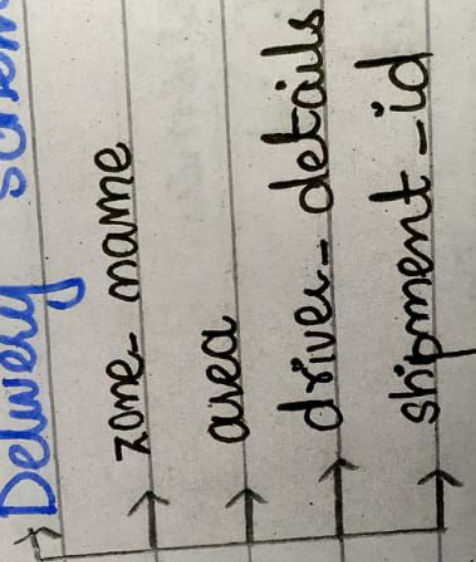 Delivery
zone_name
area
driver_details
shipment_id